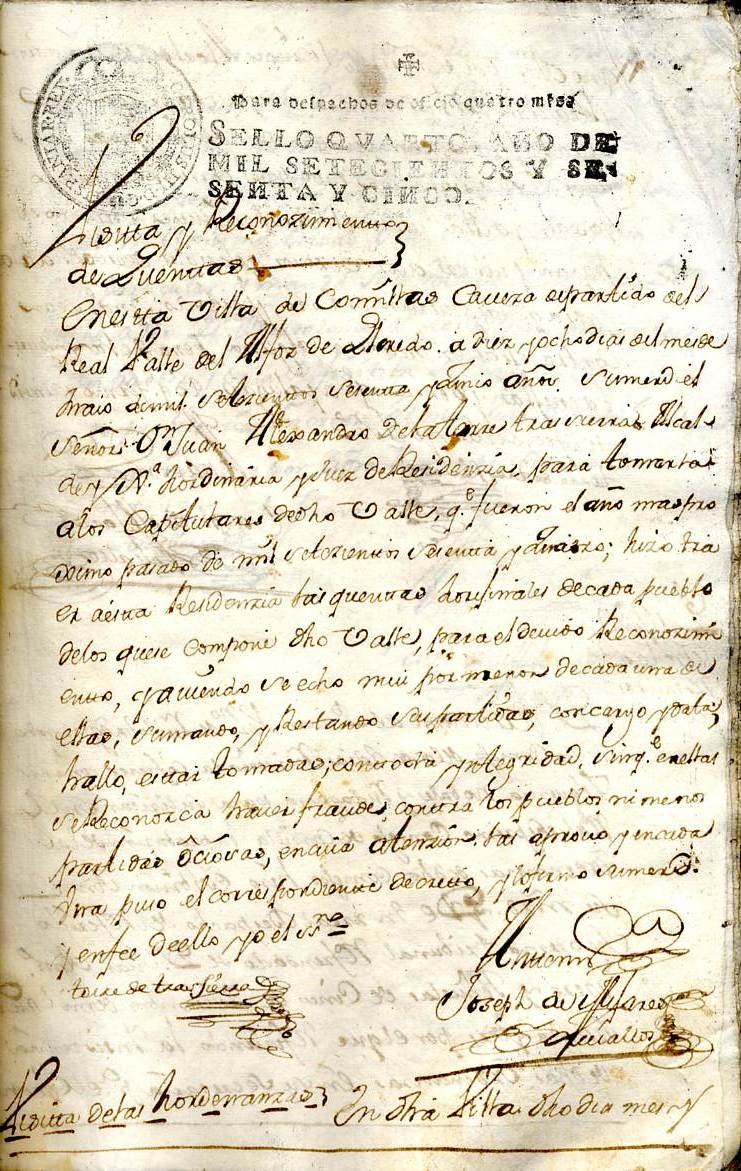 Para despachos de oficio quatro mrs
SELLO QVARTO, AÑO DE
MIL SETECIENTOS Y SE-
SENTA Y CINCO.
Visitta y Reconozimientto
de Quentas
En estta Villa de Comillas Caveza de partido del
Real Valle del Alfoz de Lloredo a diez y ocho dias del mes de
maio de mil setezientos sesenta y zinco años. Su merd el
Señor Dn Juan Alexandro de la torre tras sierra Alcal-
de y Jª hordinaria y Juez de Residenzia, para tomarla
a los Capitulares de dho Valle, qe fueron el año mas pro
ximo pasado de mil setezientos sesenta y quatro; hizo tra
er a esta Residenzia las quentas de cada pueblo
de los que se compone dho Valle, para el devido Reconozimi
entto, y aviendo se echo mui por menor de cada una de
ellas, sumando, y Restando sus partidas, con cargo y data,
hallo, estar tomadas, con toda yntegridad, sin qe en ellas
se Reconozca haver fraude, contra los pueblos ni menos
partidas oziosas, en cuia atenzion, las aprovo y en cada
Una puso el correspondiente decretto, y lo firmo su merd
y en fee de ello yo el ssno
torre de tras sierra
Antemi
Joseph de
Zevallos
Visitta de las hordenanzas
En dha Villa dho dia mes y